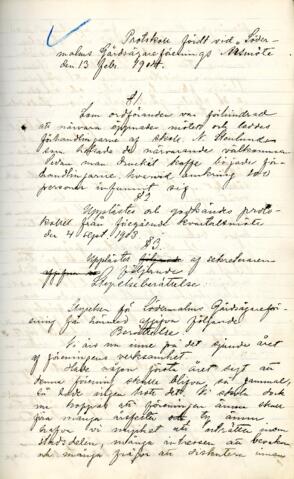 Protokoll fördt vid Söder-
malms Gårdsägareförenings Årsmöte
den 13 febr. 1904.
§1.
Som ordföranden var förhindrad
att närvara öppnades mötet och leddes
förhandlingarne af skold. N. Stenlinder
som helsade de närvarande välkomna
Sedan man druckit kaffe började för-
handlingarne, hvarvid omkring 100
personer infunnit sig
§2
Upplästes och godkändes proto-
kollet från föregående kvartalsmöte
den 4 sept. 1903
§3.
Upplästes af sekreteraren
följande
Styrelseberättelse.
Styrelsen för Södermalms Gårdsägareföre-
ning får härmed afgifva följande
Berättelse
Vi äro nu inne på det sjunde året
af föreningens verksamhet.
Hade någon förste året sagt att
denna förening skulle blifva så gammal,
så hade ingen trott det. Vi skola dock
nu hoppas att föreningen ännu skall
få många årsfester. Ty ännu
hafva vi mycket att uträtta inom
stadsdelen, många intressen att bevaka
och många frågor att diskutera innan